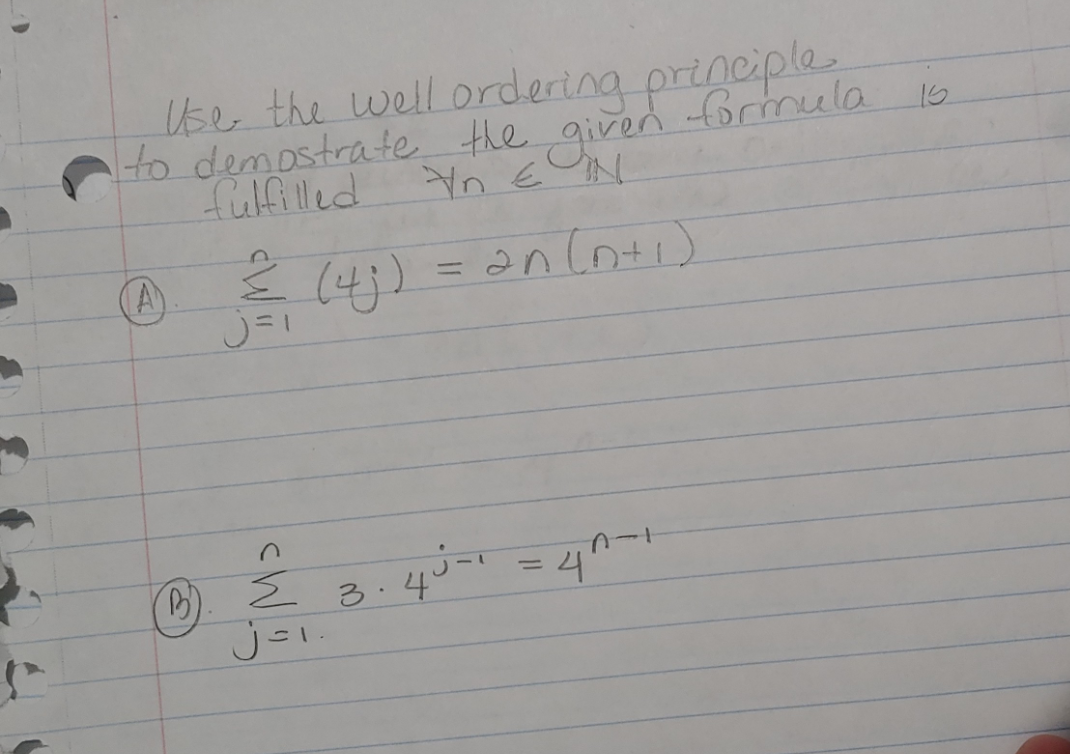 Use the well ordering principle
to demostrate the given formula is
fulfilled ∀n ∈ ℕ
(A). ∑_{j=1}^{n} (4j) = 2n(n+1)
(B). ∑_{j=1.}^{n} 3 · 4^{j-1} = 4^{n-1}